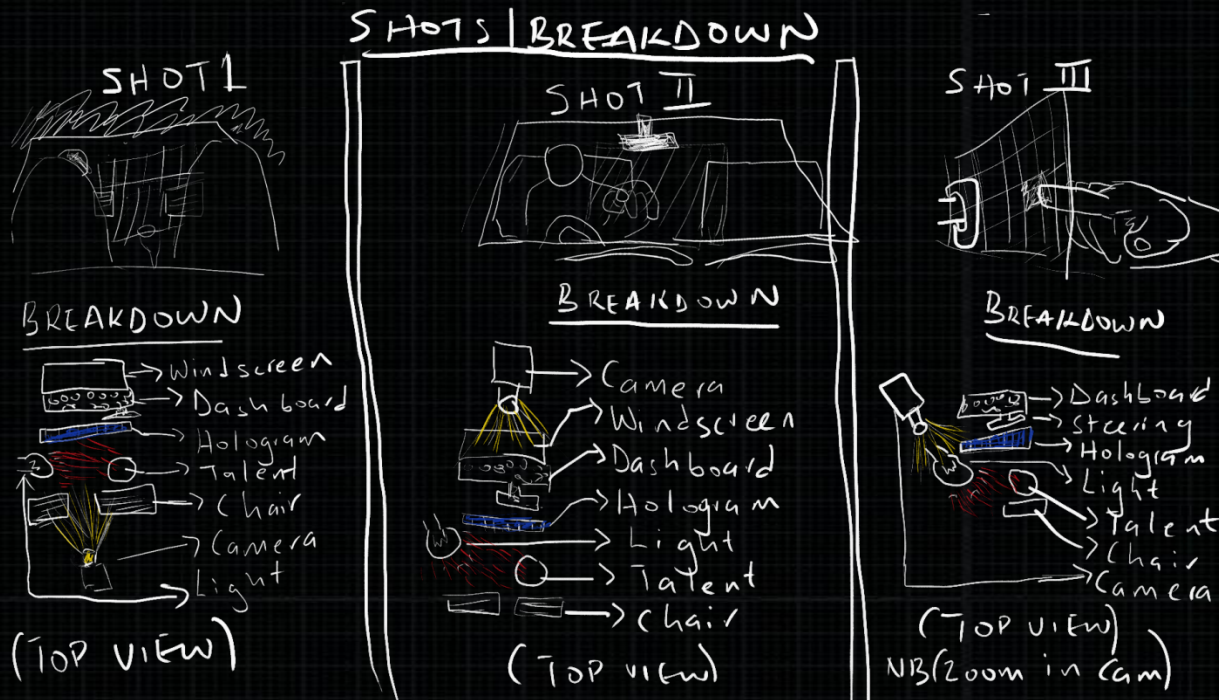 SHOTS | BREAKDOWN
SHOT 1
BREAKDOWN
Windscreen
Dash board
Hologram
Talent
Chair
Camera
Light
(TOP VIEW)
SHOT II
BREAKDOWN
Camera
Windscreen
Dashboard
Hologram
Light
Talent
Chair
(TOP VIEW)
SHOT III
BREAKDOWN
Dashboard
Steering
Hologram
Light
Talent
Chair
Camera
(TOP VIEW)
NB(Zoom in Cam)